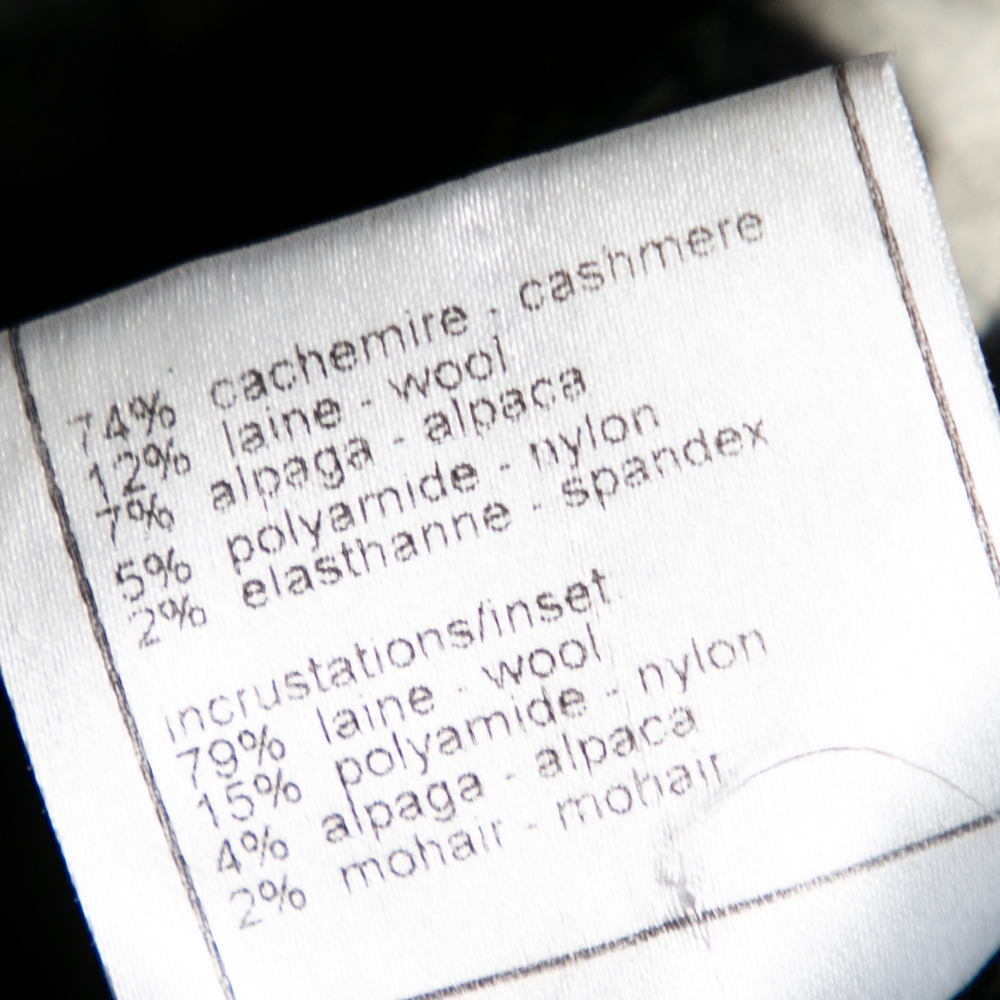 74% cachemire - cashmere
12% laine - wool
7% alpaga - alpaca
5% polyamide - nylon
2% elasthanne - spandex
incrustations/inset
79% laine - wool
15% polyamide - nylon
4% alpaga - alpaca
2% mohair - mohair